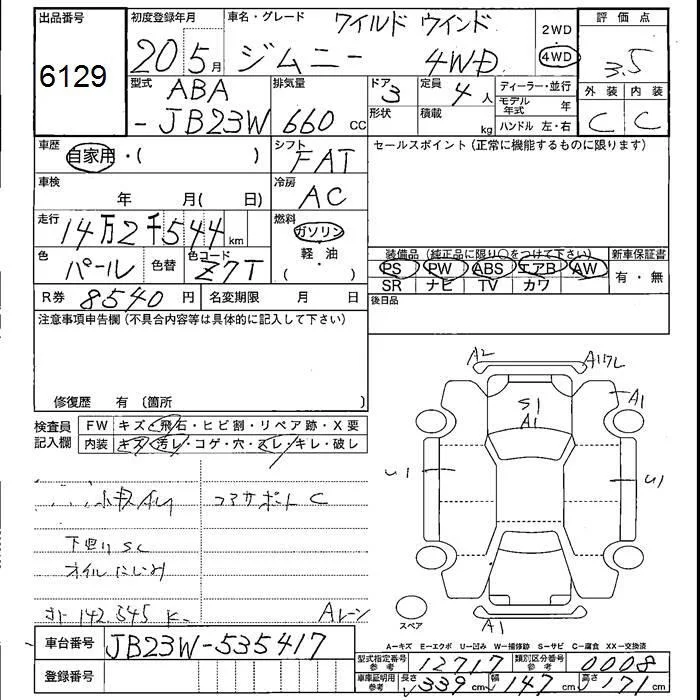 出品番号 初度登録年月 車名・グレード ワイルド ウインド 2WD 評価点
6129 20 5月 ジムニー 4WD 4WD 3.5
型式 ABA 排気量 ドア 3 定員 4人 ディーラー・並行 外装 内装
-JB23W 660 CC 形状 積載 kg モデル年式 年 C C
ハンドル 左・右
車歴 自家用・( ) シフト FAT セールスポイント(正常に機能するものに限ります)
車検 年 月( 日) 冷房 AC
走行 14万2千544km 燃料 ガソリン
軽・油
( )
色 パール 色替 色コード Z7T 装備品(純正品に限り○をつけて下さい) 新車保証書
PS PW ABS エアB AW 有・無
SR ナビ TV カワ
R券 8540円 名変期限 月 日 後日品
注意事項申告欄(不具合内容等は具体的に記入して下さい)
修復歴 有 〔箇所 〕
検査員記入欄 FW キズ・飛石・ヒビ割・リペア跡・X要
内装 キズ・汚レ・コゲ・穴・スレ・キレ・破レ
A2 A17L
A1
S1
A1
U1 U1
コアサポート C
下回り SC
オイルにじみ
142,545 K Aレーン
スペア A1
A-キズ E-エクボ U-凹み W-補修跡 S-サビ C-腐食 XX-交換済
車台番号 JB23W-535417
型式指定番号 参考 12717 類別区分番号 参考 0008
登録番号 車庫証明用 参考 長さ 339cm 幅 147cm 高さ 171cm